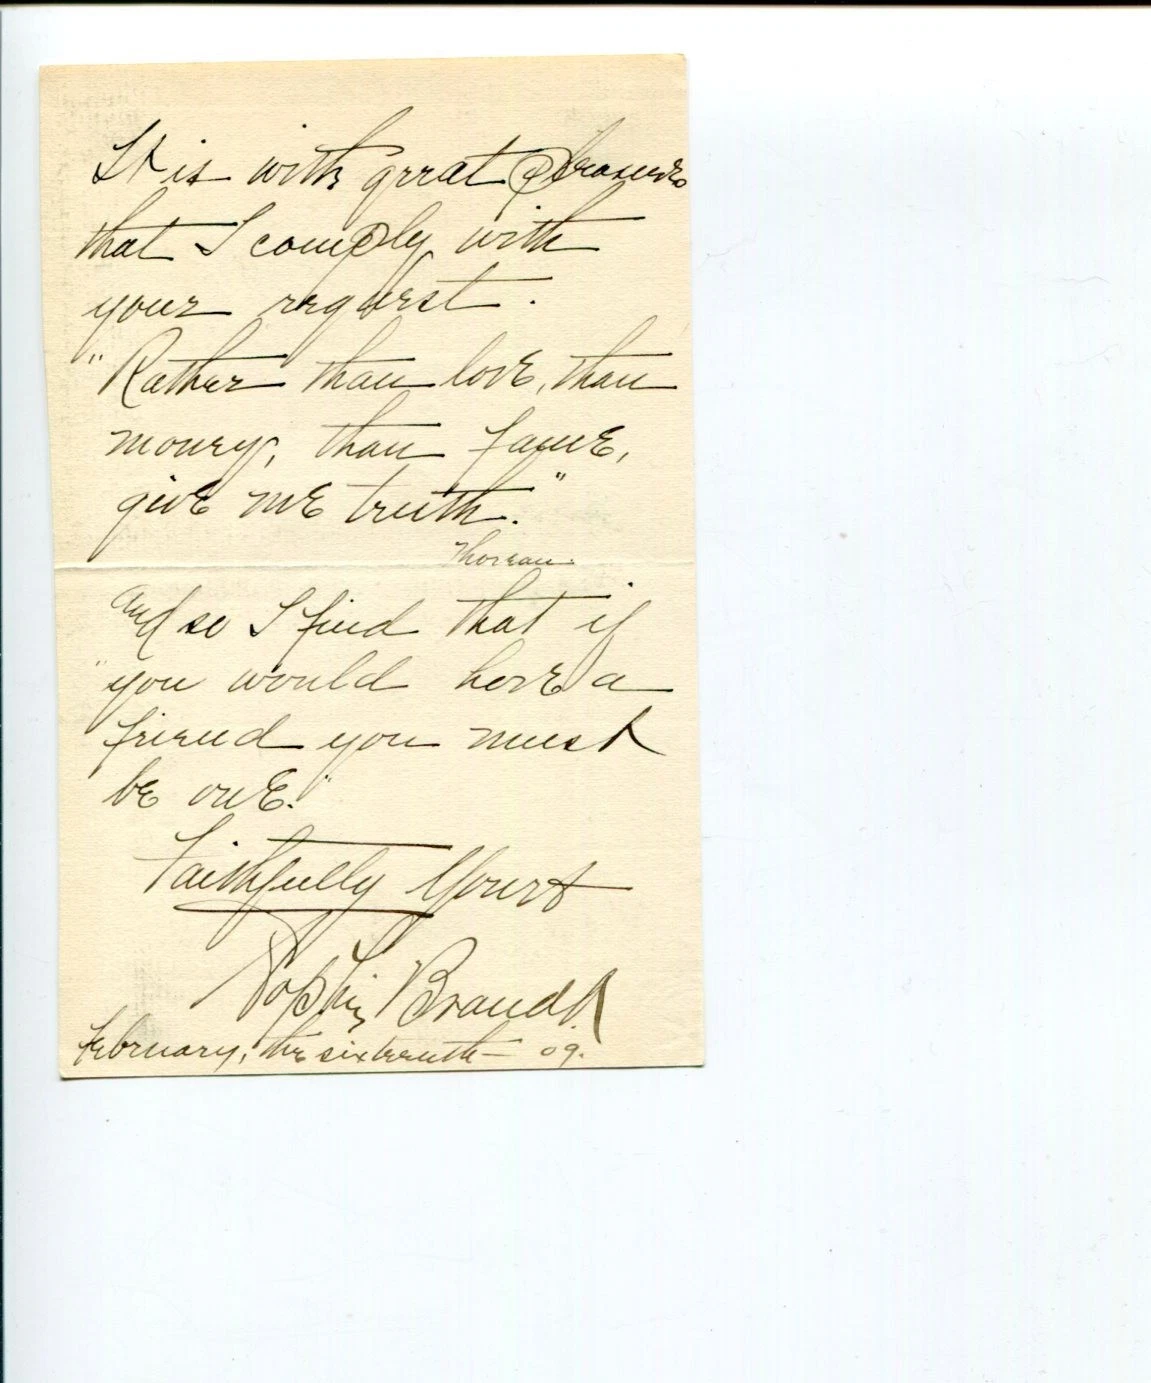 It is with great pleasure
that I comply with
your request.
"Rather than love, than
money, than fame,
give me truth."
Thoreau.
And so I find that if
"you would have a
friend you must
be one."
Faithfully Yours
Sophie Brandt.
February, the sixteenth – 09.